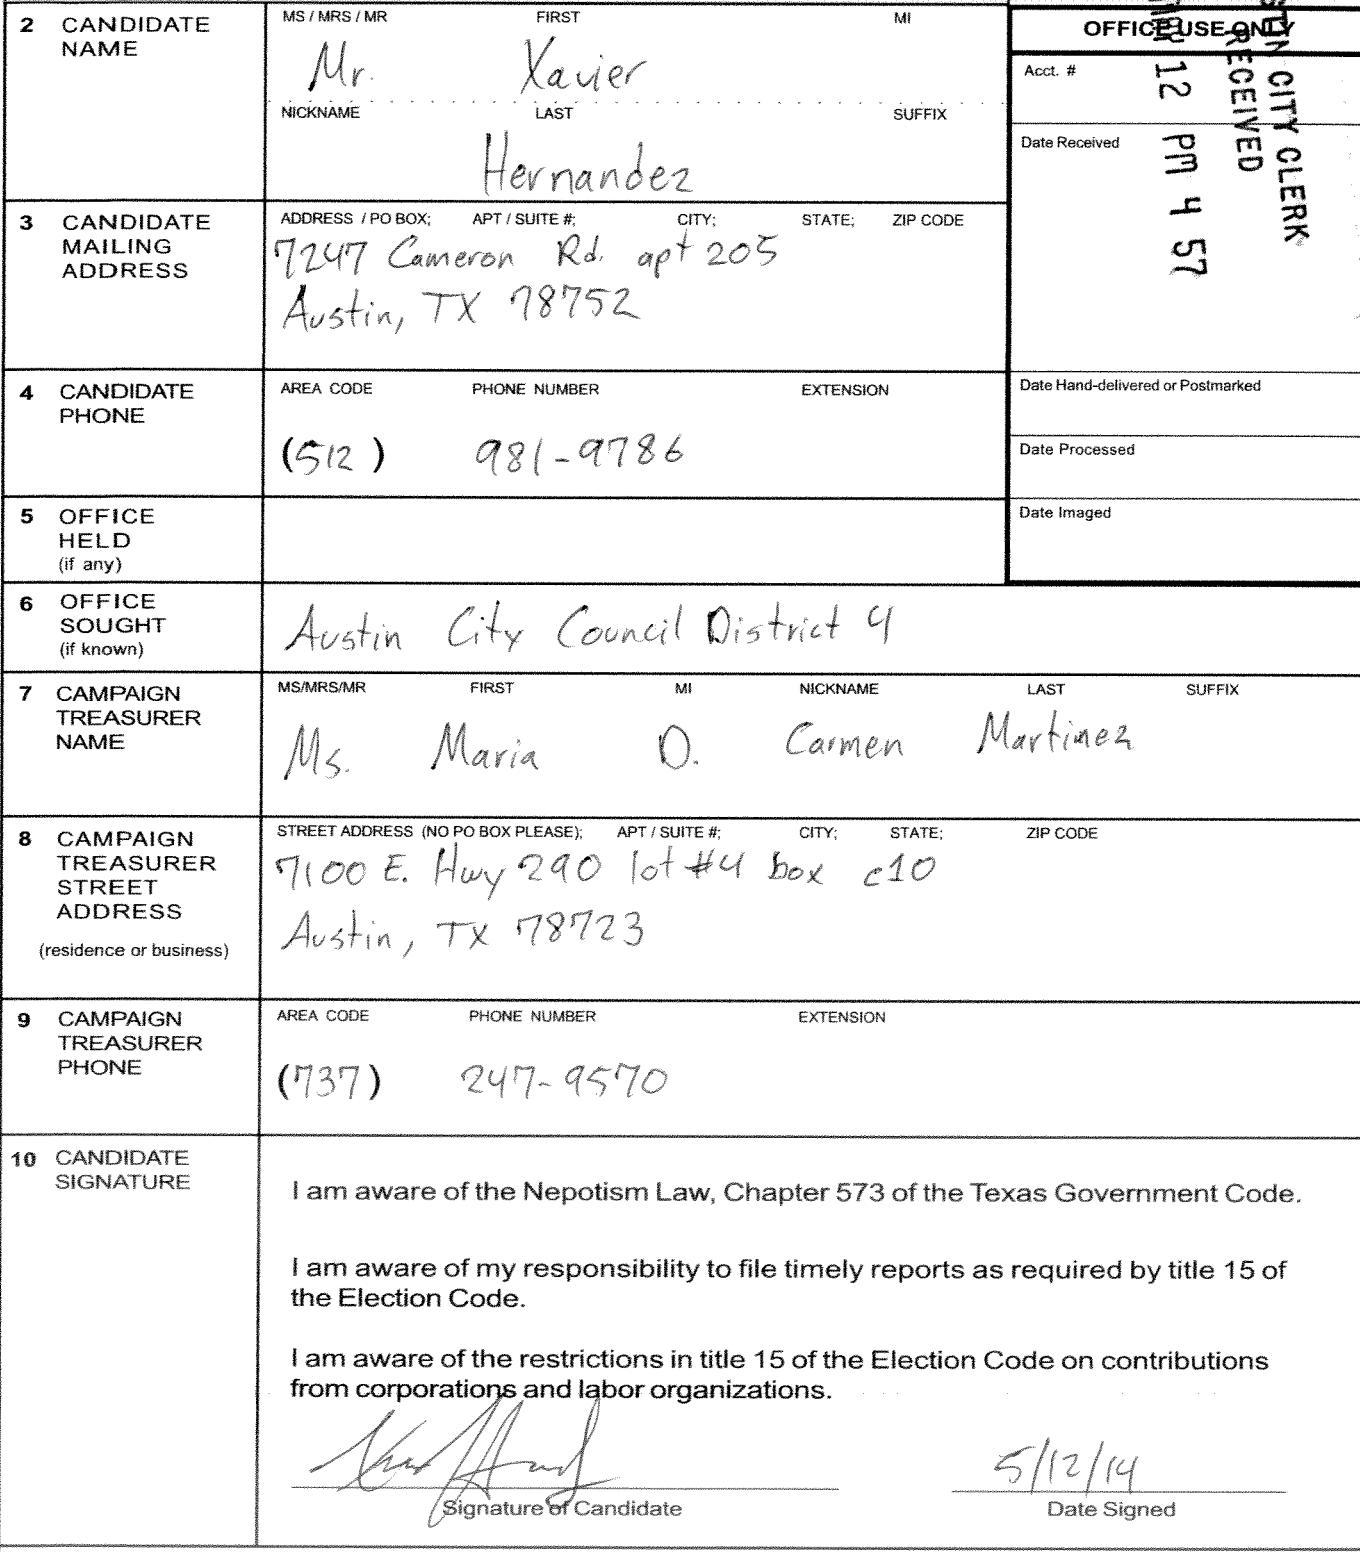 2 CANDIDATE NAME
MS / MRS / MR FIRST MI
Mr. Xavier
NICKNAME LAST SUFFIX
Hernandez
OFFICE USE ONLY
Acct. #
Date Received
CITY CLERK
RECEIVED
12 PM 4 57
Date Hand-delivered or Postmarked
Date Processed
Date Imaged
3 CANDIDATE MAILING ADDRESS
ADDRESS / PO BOX; APT / SUITE #; CITY; STATE; ZIP CODE
7247 Cameron Rd. apt 205
Austin, TX 78752
4 CANDIDATE PHONE
AREA CODE PHONE NUMBER EXTENSION
(512) 981-9786
5 OFFICE HELD (if any)
6 OFFICE SOUGHT (if known)
Austin City Council District 4
7 CAMPAIGN TREASURER NAME
MS/MRS/MR FIRST MI NICKNAME LAST SUFFIX
Ms. Maria D. Carmen Martinez
8 CAMPAIGN TREASURER STREET ADDRESS
(residence or business)
STREET ADDRESS (NO PO BOX PLEASE); APT / SUITE #; CITY; STATE; ZIP CODE
7100 E. Hwy 290 lot #4 box c10
Austin, TX 78723
9 CAMPAIGN TREASURER PHONE
AREA CODE PHONE NUMBER EXTENSION
(737) 247-9570
10 CANDIDATE SIGNATURE
I am aware of the Nepotism Law, Chapter 573 of the Texas Government Code.
I am aware of my responsibility to file timely reports as required by title 15 of
the Election Code.
I am aware of the restrictions in title 15 of the Election Code on contributions
from corporations and labor organizations.
5/12/14
Signature of Candidate Date Signed